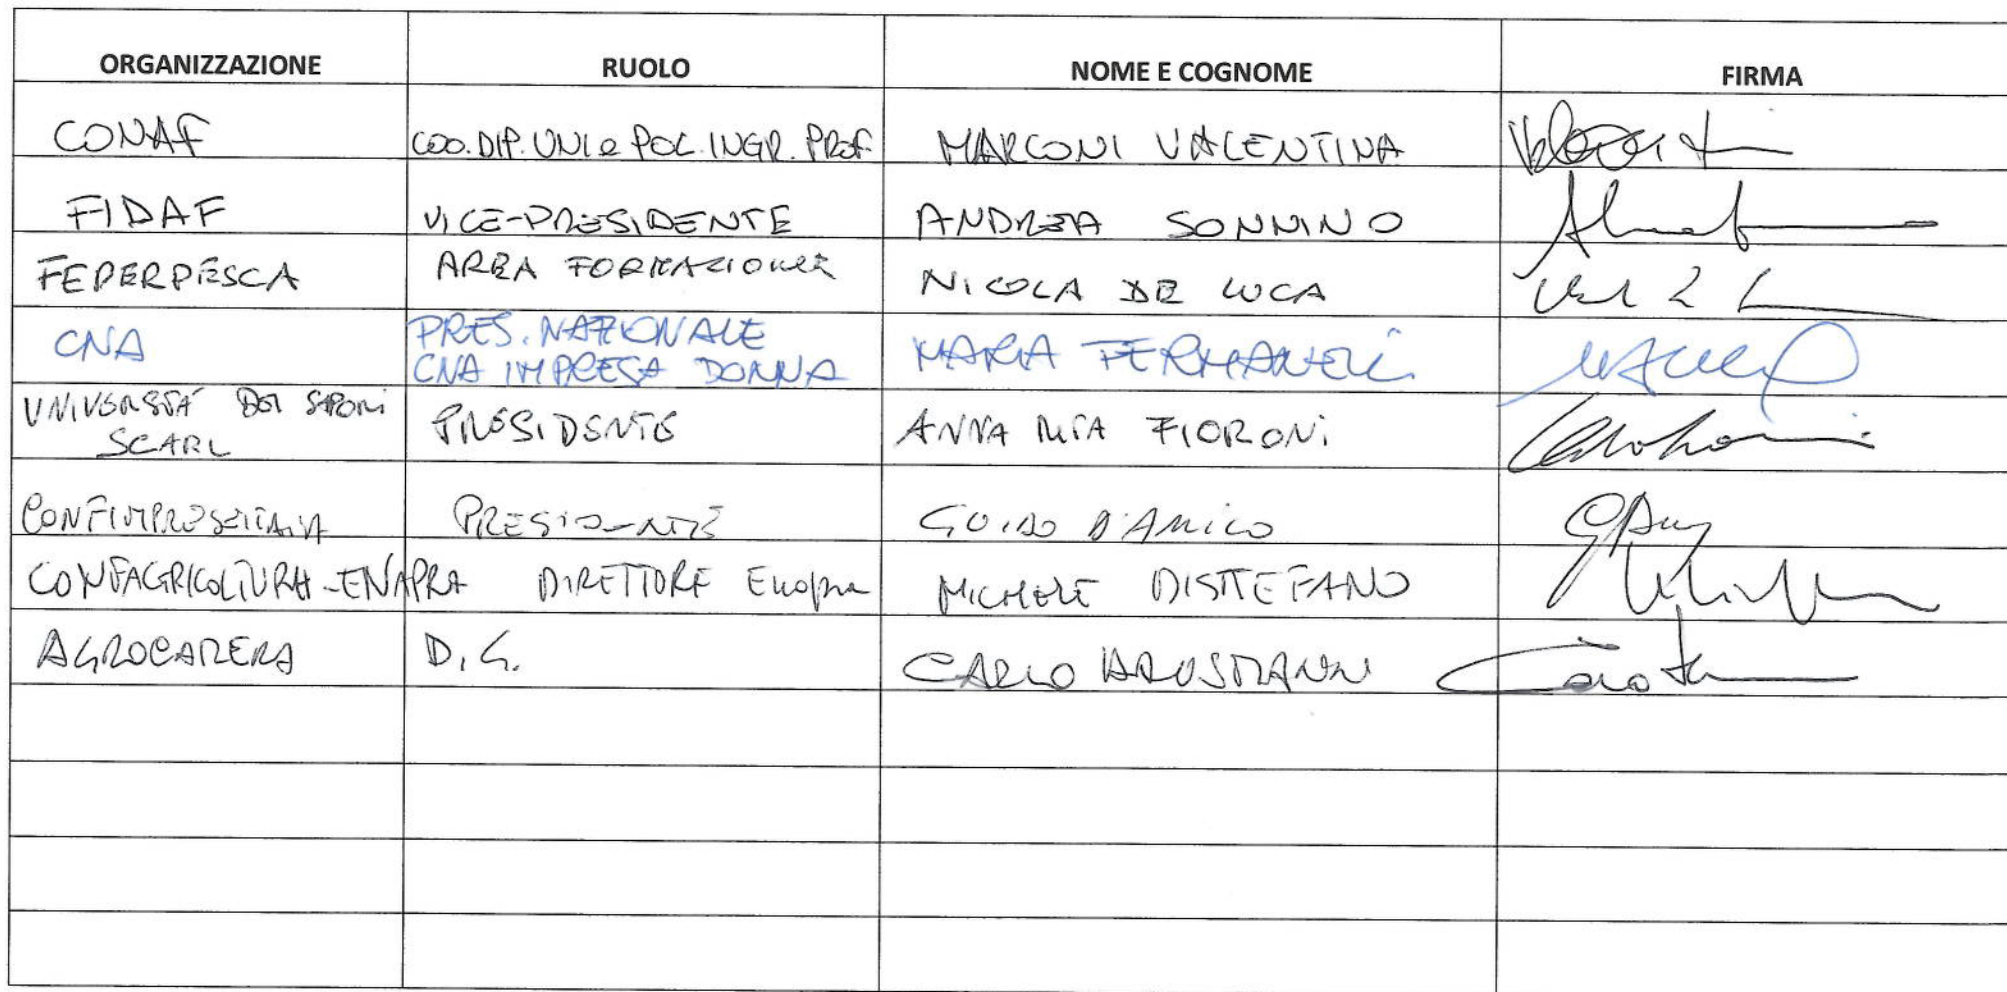 ORGANIZZAZIONE RUOLO NOME E COGNOME FIRMA
CONAF COO.DIP. UNI e POL. INGR. PROF. MARCONI VALENTINA
FIDAF VICE-PRESIDENTE ANDREA SONNINO
FEDERPESCA AREA FORMAZIONE NICOLA DE LUCA
CNA PRES. NAZIONALE MARIA FERMANELLI
CNA IMPRESA DONNA
UNIVERSITÀ DEI SAPORI PRESIDENTE ANNA RITA FIORONI
SCARL
CONFIMPRESEITALIA PRESIDENTE GUIDO D'AMICO
CONFAGRICOLTURA-ENAPRA DIRETTORE Enapra MICHELE DISTEFANO
AGROCAMERA D.G. CARLO